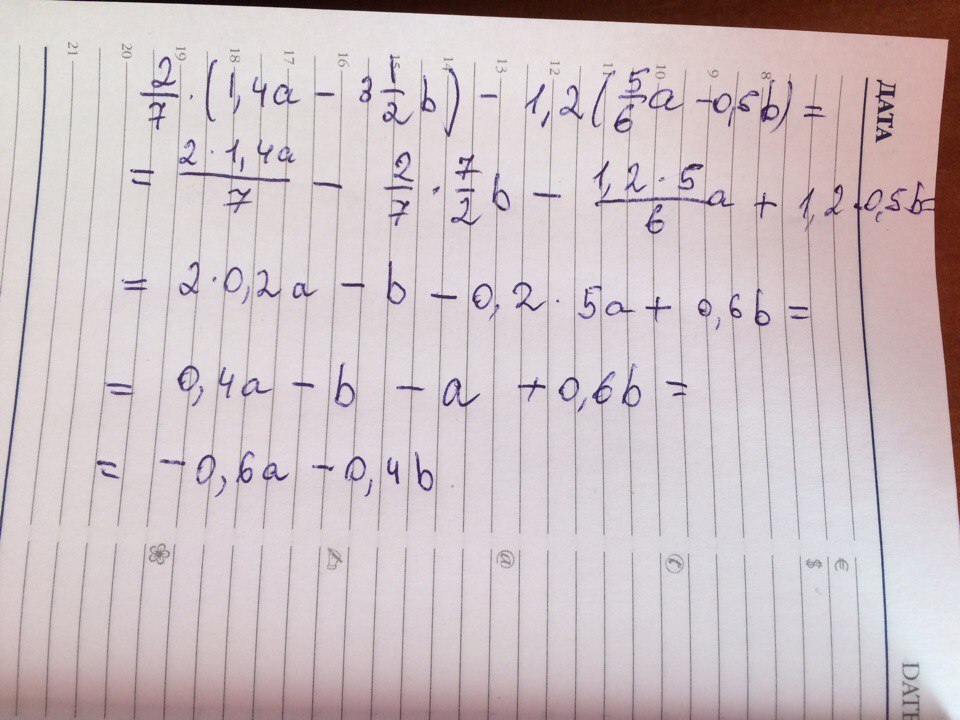 2/7 · (1,4a - 3 1/2 b) - 1,2(5/6 a - 0,5b) =
= 2 · 1,4a / 7 - 2/7 · 7/2 b - 1,2 · 5 / 6 a + 1,2 · 0,5b =
= 2 · 0,2a - b - 0,2 · 5a + 0,6b =
= 0,4a - b - a + 0,6b =
= -0,6a - 0,4b
ДАТА
8
9
10
11
12
13
14
15
16
17
18
19
20
21
€
$
@
DATE